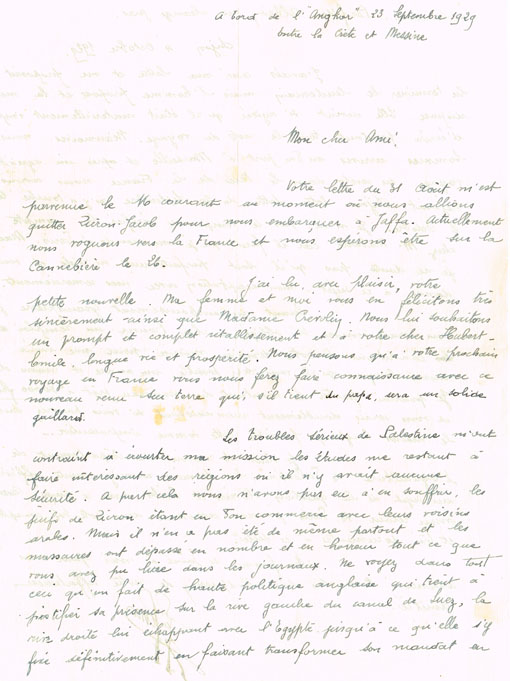 A bord de l'"Angkor" 23 Septembre 1929
Entre la Crète et Messine
Mon cher Ami,
Votre lettre du 31 Août m'est
parvenue le 16 courant au moment où nous allions
quitter Zicron-Jacob pour nous embarquer à Jaffa. Actuellement
nous voguons vers la France et nous espérons être sur la
Cannebière le 26.
J'ai lu, avec plaisir, votre
petite nouvelle. Ma femme et moi vous en félicitons très
sincèrement ainsi que Madame. Nous lui souhaitons
un prompt et complet rétablissement et à votre cher Hubert-
longue vie et prospérité. Nous pensons qu'à votre prochain
voyage en France vous nous ferez faire connaissance avec ce
nouveau venu sur terre qui, s'il tient du papa, sera un solide
gaillard.
Les troubles sérieux de Palestine m'ont
contraint à écourter ma mission les études me restant à
faire intéressant des régions où il n'y avait aucune
sécurité. A part cela nous n'avons pas eu à en souffrir, les
juifs de Zicron étant en bon commerce avec leurs voisins
arabes. Mais il n'en a pas été de même partout et les
massacres ont dépassé en nombre et en horreur tout ce que
vous avez pu lire dans les journaux. Ne voyez dans tout
ceci qu'un fait de haute politique anglaise qui tient à
justifier sa présence sur la rive gauche du canal de Suez, la
rive droite lui échappant avec l'Egypte jusqu'à ce qu'elle s'y
fixe définitivement en faisant transformer son mandat en